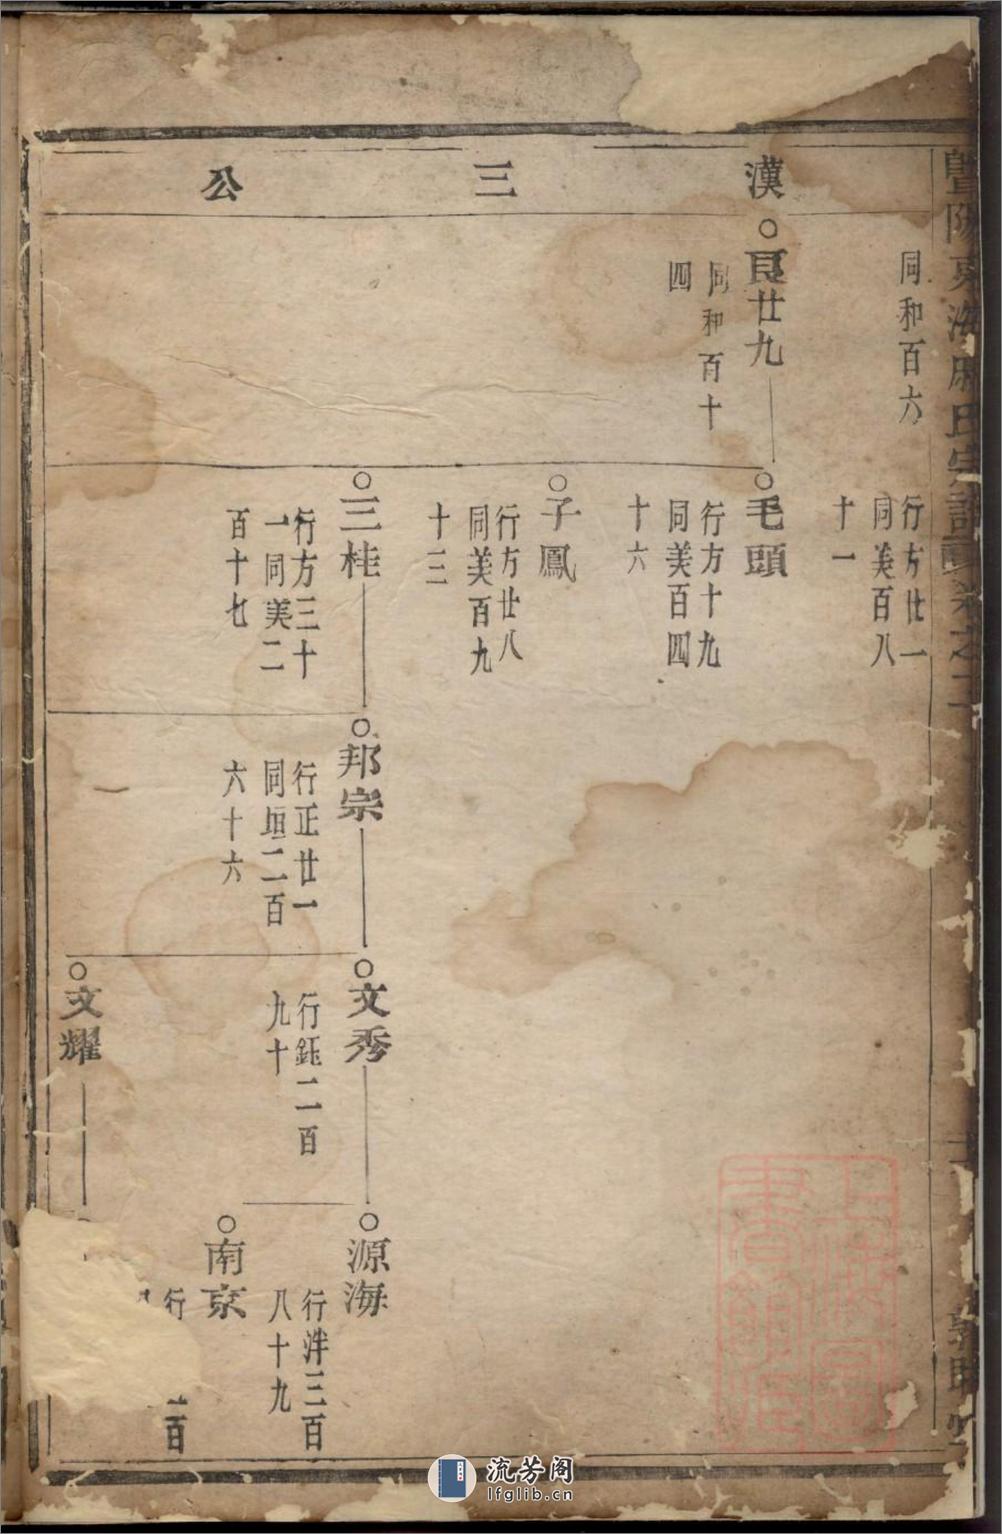 暨陽東海
氏宗譜
卷之二
漢三公
同和百六
行方廿一
同美百八
十一
良廿九
同和百十
四
毛頭
行方十九
同美百四
十六
子鳳
行方廿八
同美百九
十三
三桂
行方三十
一同美二
百十七
邦宗
行正廿一
同垣二百
六十六
文秀
行鈺二百
九十
源海
行泮三百
八十九
南京
行
二百
文耀
流芳阁
lfglib.cn